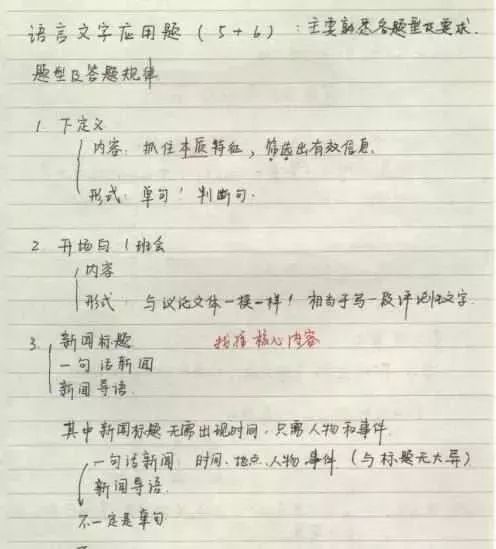 语言文字应用题(5+6):主要熟悉各题型及要求.
题型及答题规律
1. 下定义
内容: 抓住本质特征,筛选出有效信息.
形式: 单句! 判断句.
2. 开场白(班会
内容
形式: 与议论文体一模一样! 相当于写一段评论性文字.
3. 新闻标题 找准核心内容
一句话新闻
新闻导语.
其中新闻标题无需出现时间.只需人物和事件.
一句话新闻: 时间、地点、人物、事件(与标题无大异)
新闻导语.
不一定是单句